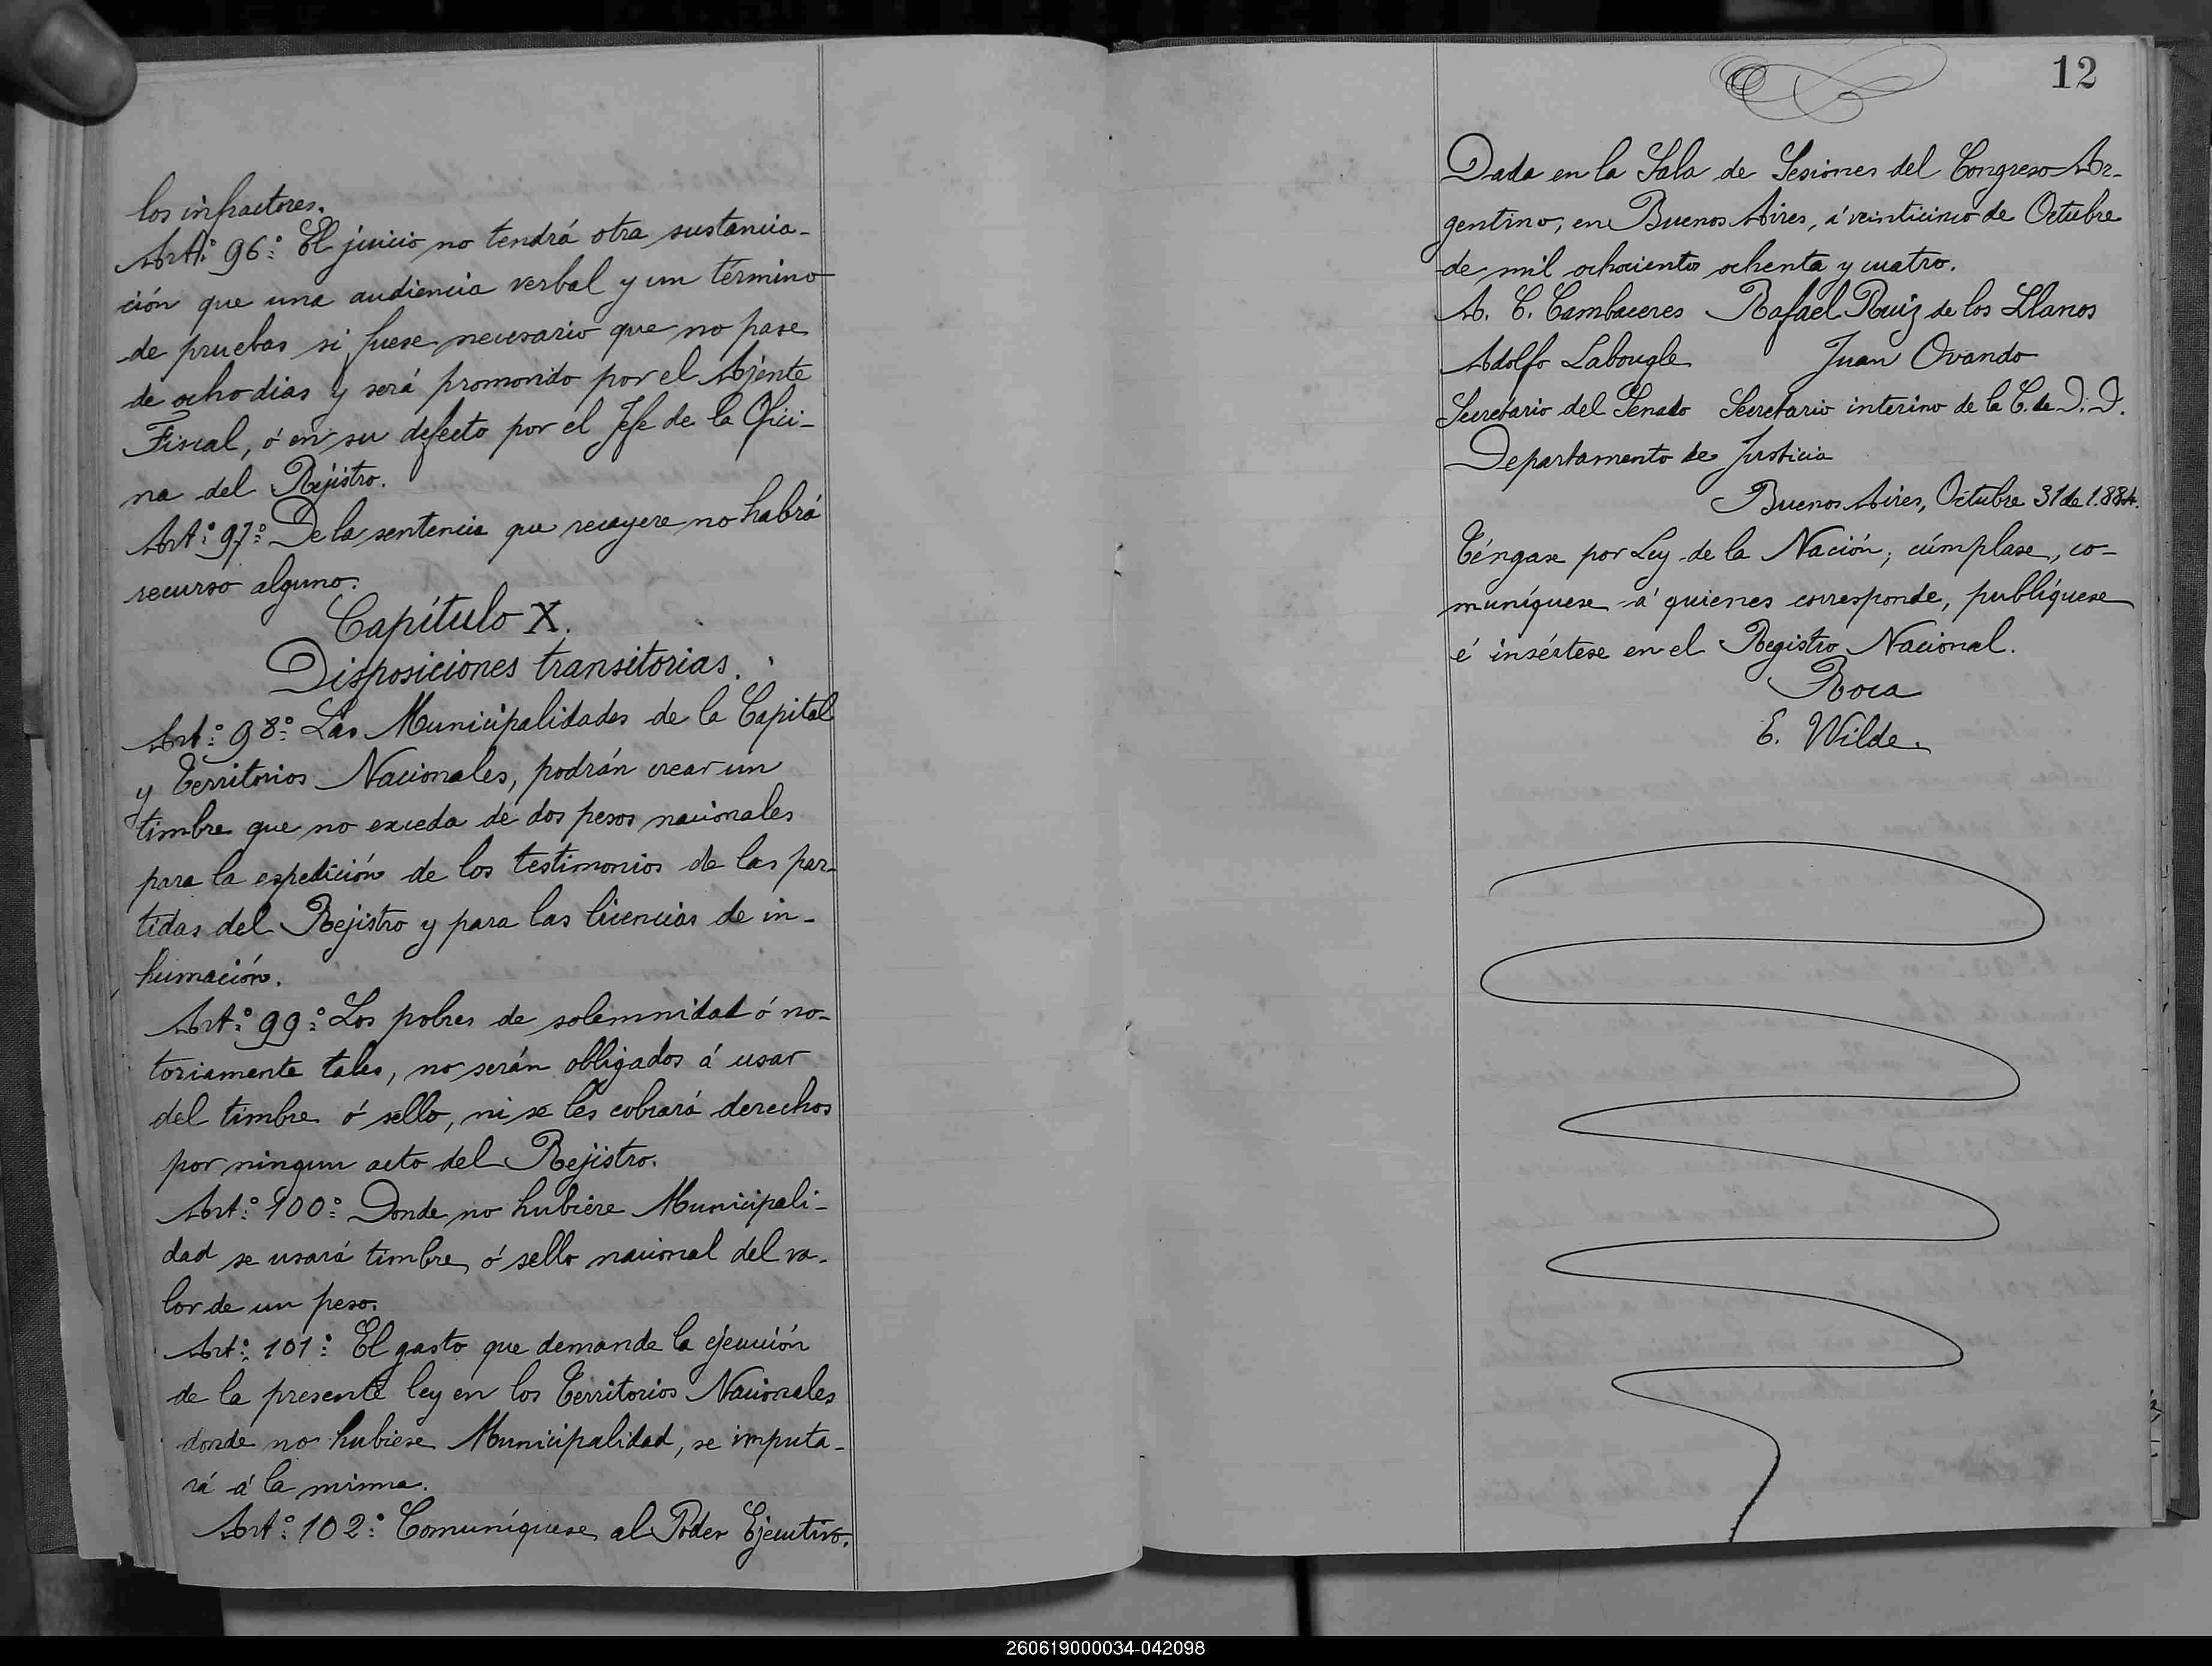 los infractores.
Art.º 96.º El juicio no tendrá otra sustancia-
ción que una audiencia verbal y un término
de pruebas si fuese necesario que no pase
de ocho dias y será promovido por el Ajente
Fiscal, ó en su defecto por el Jefe de la Ofici-
na del Rejistro.
Art.º 97.º De la sentencia que recayere no habrá
recurso alguno.
Capítulo X.
Disposiciones transitorias.
Art.º 98.º Las Municipalidades de la Capital
y Territorios Nacionales, podrán crear un
timbre que no exceda de dos pesos nacionales
para la espedición de los testimonios de las par-
tidas del Rejistro y para las licencias de in-
humación.
Art.º 99.º Los pobres de solemnidad ó no-
toriamente tales, no serán obligados á usar
del timbre ó sello, ni se les cobrará derechos
por ningun acto del Rejistro.
Art.º 100.º Donde no hubiere Municipali-
dad se usará timbre ó sello nacional del va-
lor de un peso.
Art.º 101.º El gasto que demande la ejecución
de la presente ley en los Territorios Nacionales
donde no hubiese Municipalidad, se imputa-
rá á la misma.
Art.º 102.º Comuníquese al Poder Ejecutivo.
12
Dada en la Sala de Sesiones del Congreso Ar-
gentino, en Buenos Aires, á veinticinco de Octubre
de mil ochocientos ochenta y cuatro.
A. C. Cambaceres Rafael Ruiz de los Llanos
Adolfo Labougle Juan Ovando
Secretario del Senado Secretario interino de la C. de D. D.
Departamento de Justicia
Buenos Aires, Octubre 31 de 1.884.
Téngase por Ley de la Nación, cúmplase, co-
muníquese á quienes corresponde, publíquese
é insértese en el Registro Nacional.
Roca
E. Wilde.
260619000034-042098